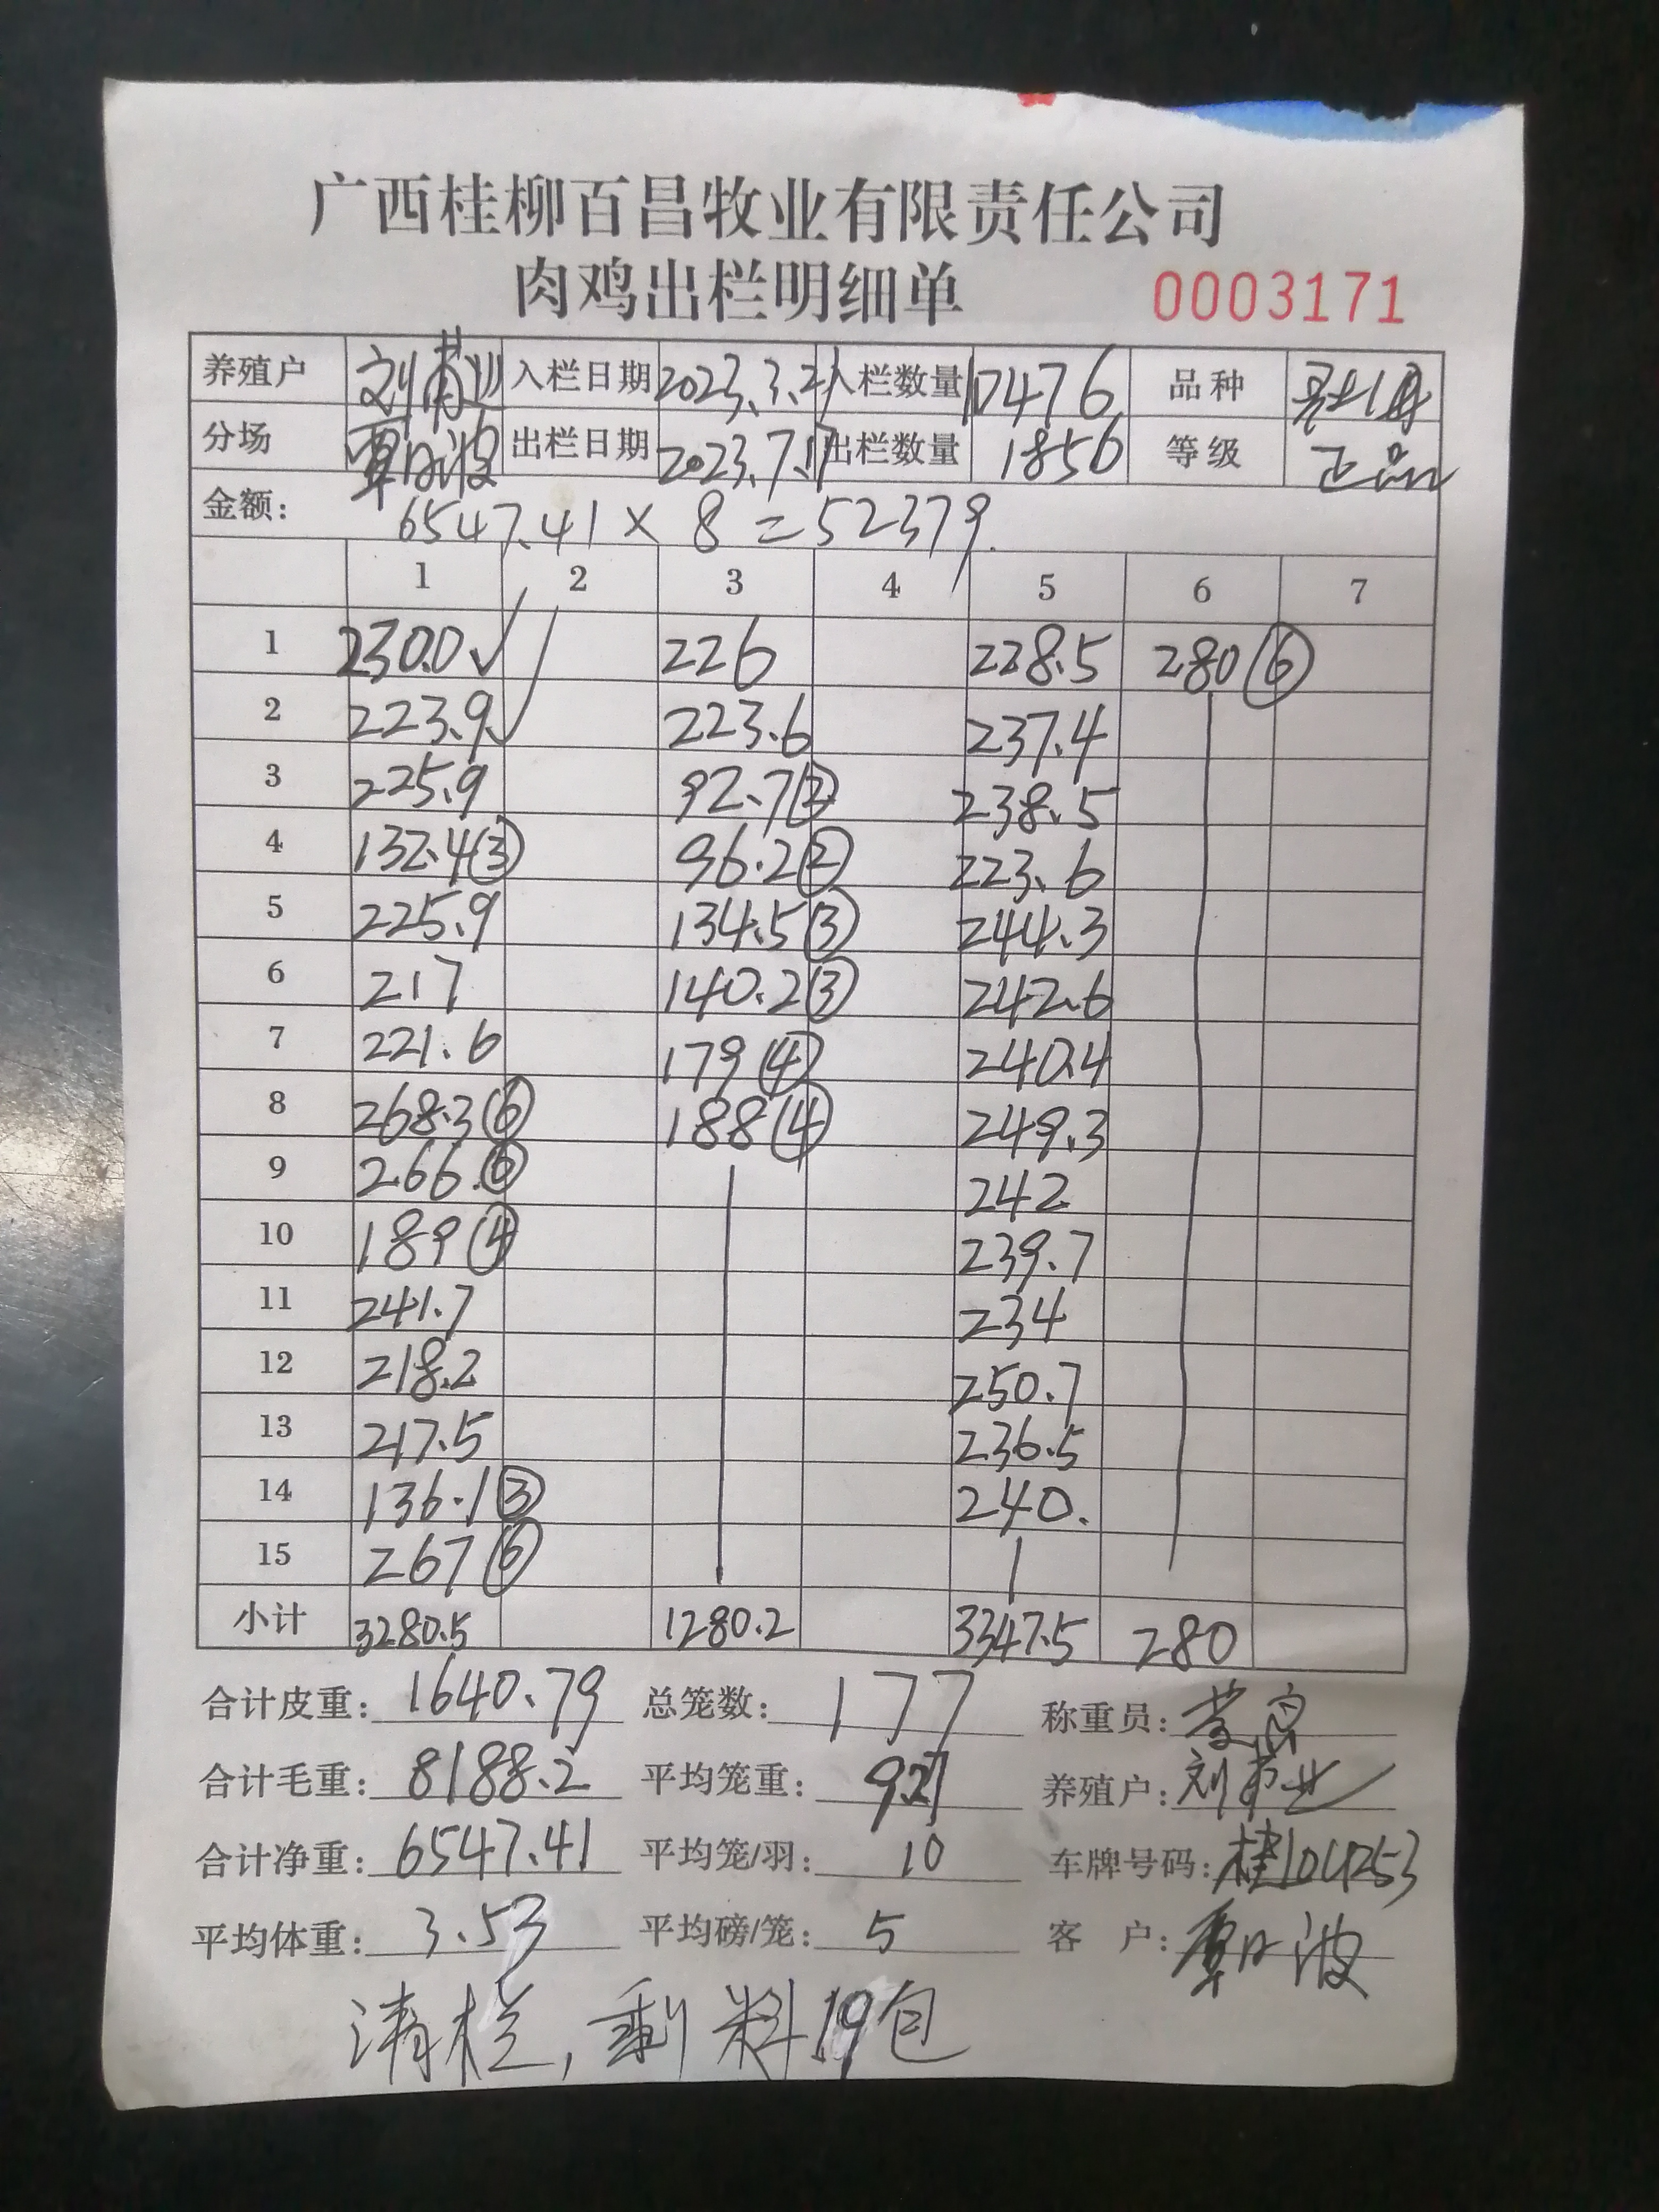 广西桂柳百昌牧业有限责任公司
肉鸡出栏明细单 0003171
养殖户 入栏日期 2023.3.21 入栏数量 17476 品种
分场 覃月波 出栏日期 2023.7.17 出栏数量 1856 等级 正品
金额: 6547.41 × 8 = 52379.
1 2 3 4 5 6 7
1 230.0√ 226 228.5 280⑥
2 223.9√ 223.6 237.4
3 225.9 92.7② 238.5
4 132.4③ 96.2② 223.6
5 225.9 134.5③ 244.3
6 217 140.2③ 242.6
7 221.6 179④ 240.4
8 268.3⑥ 188④ 249.3
9 266.⑥ 242
10 189④ 239.7
11 241.7 234
12 218.2 250.7
13 217.5 236.5
14 136.1③ 240.
15 267⑥
小计 3280.5 1280.2 3347.5 280
合计皮重: 1640.79 总笼数: 177 称重员:
合计毛重: 8188.2 平均笼重: 9.27 养殖户:
合计净重: 6547.41 平均笼/羽: 10 车牌号码:
平均体重: 3.53 平均磅/笼: 5 客 户: 覃月波
清栏,剩料19包